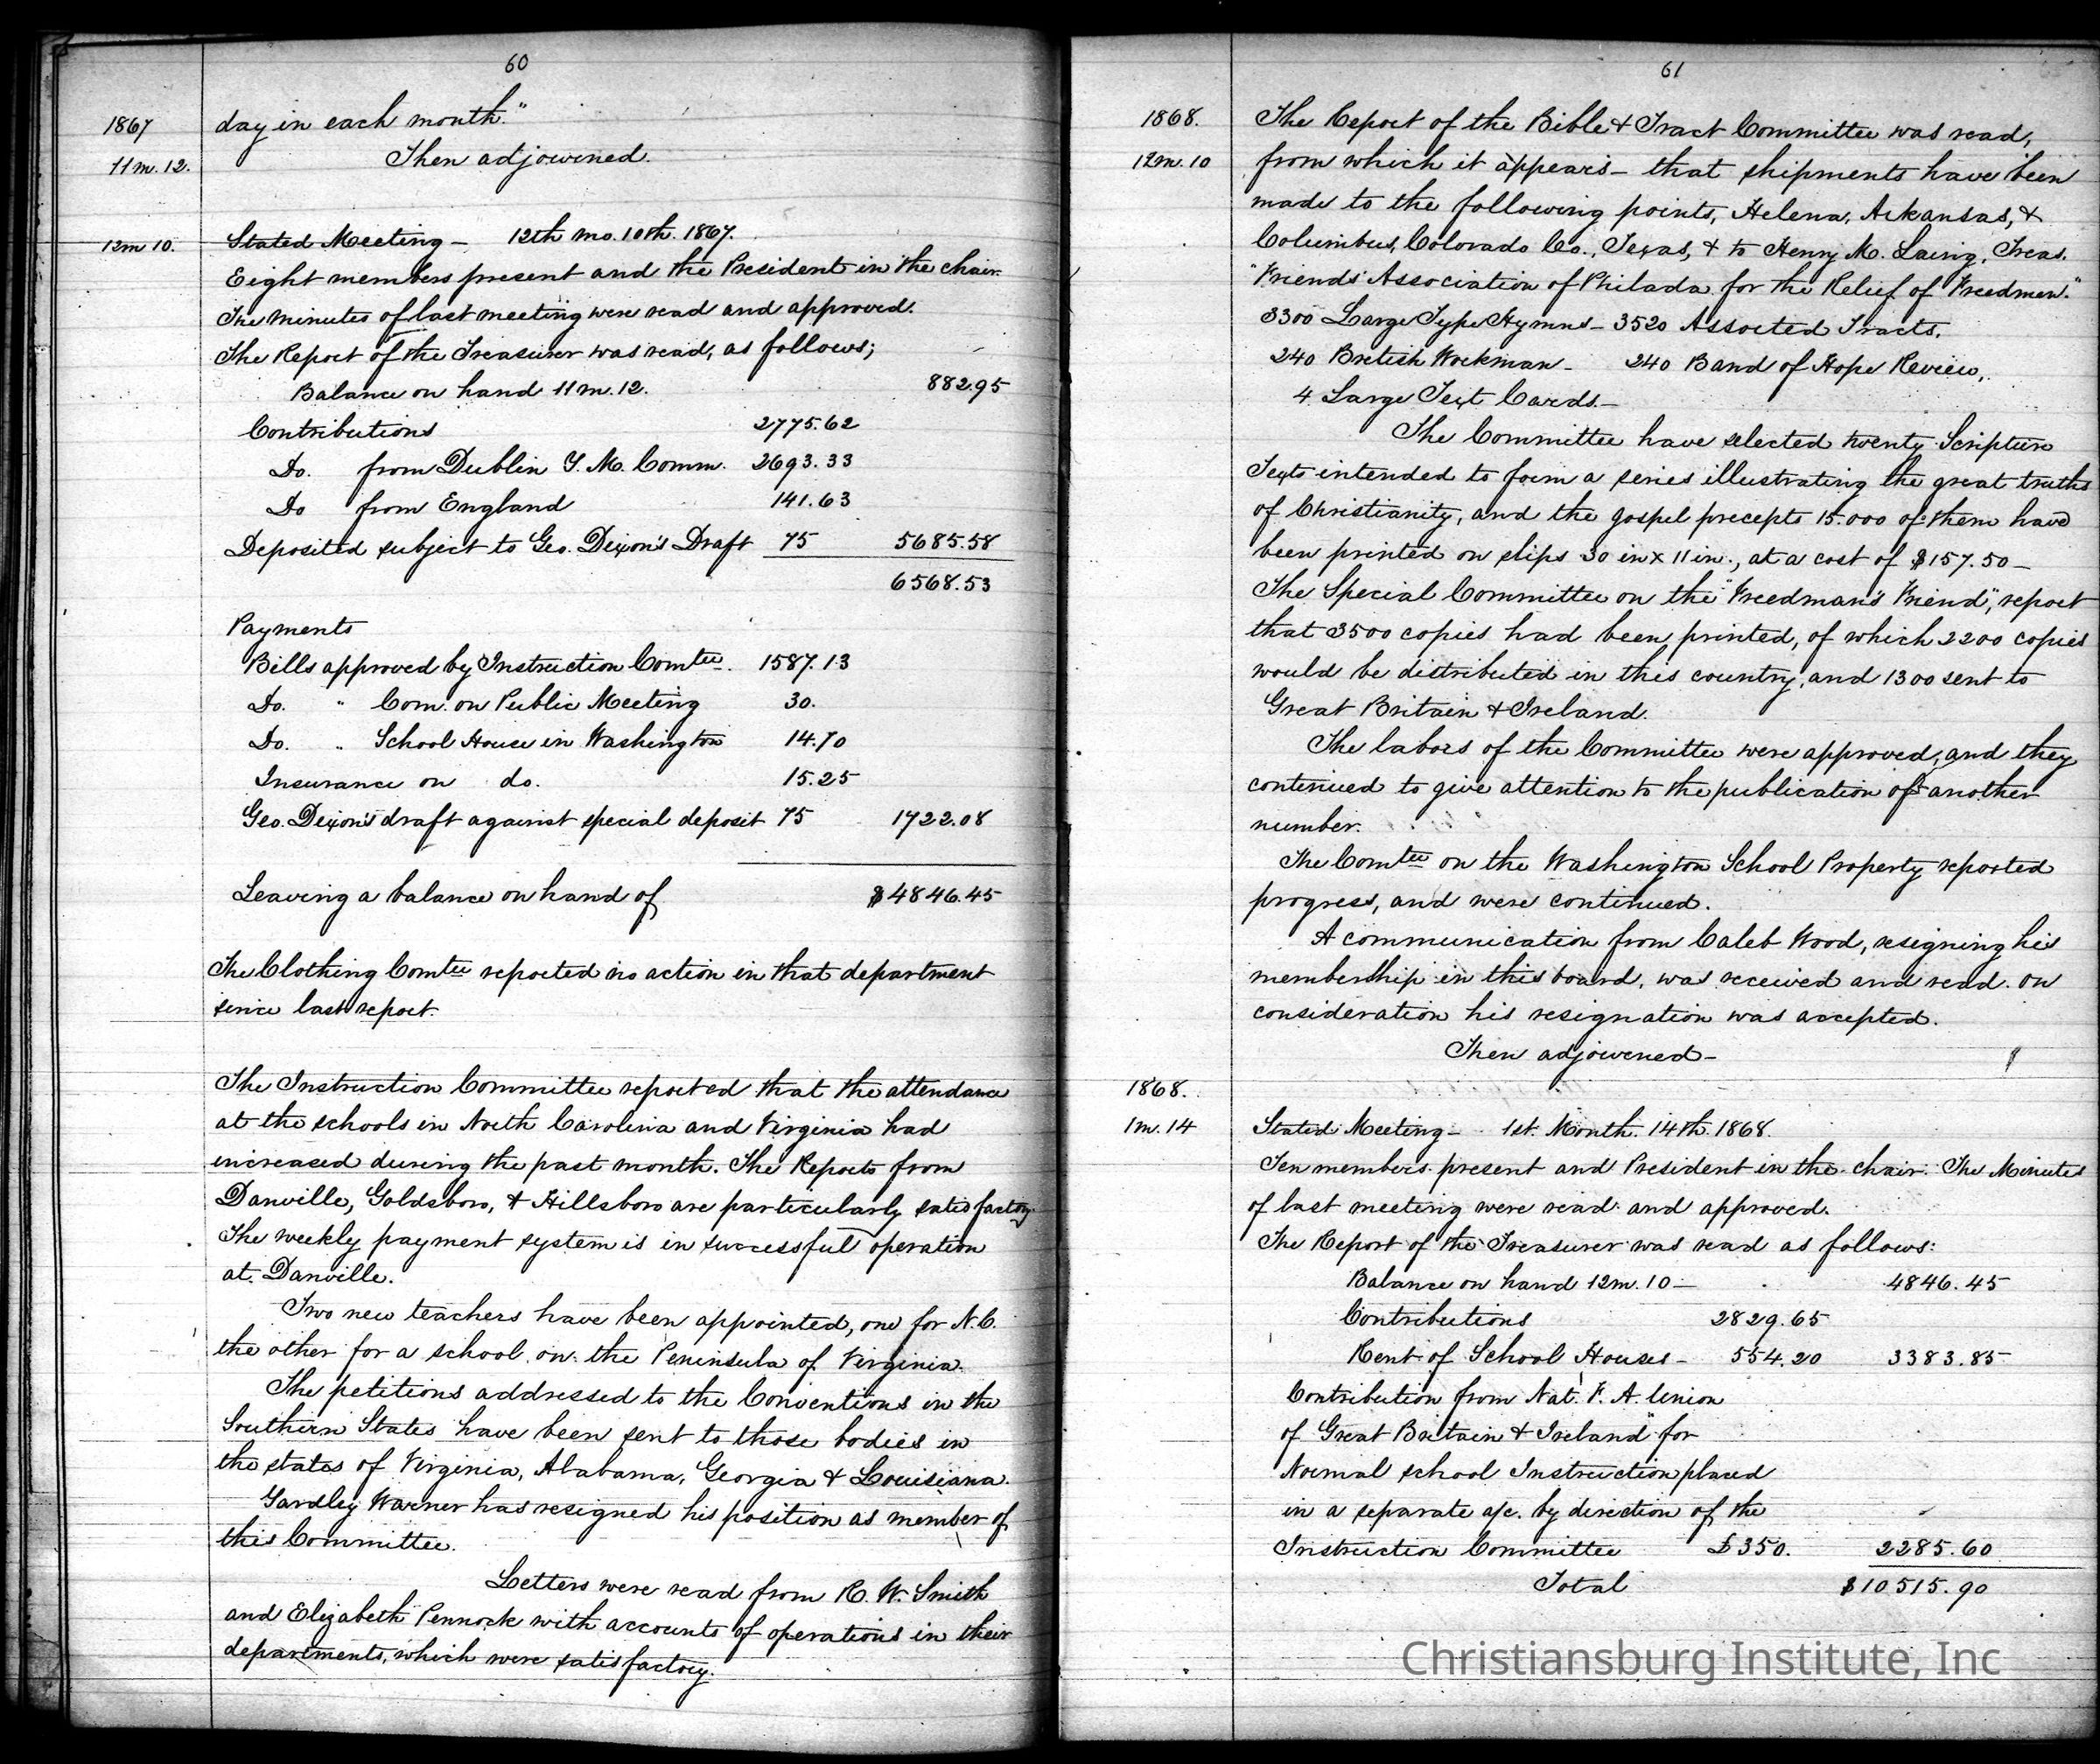 60
1867 day in each month."
11m.12. Then adjourned.
12m 10. Stated Meeting – 12th mo. 10th. 1867.
Eight members present and the President in the chair.
The minutes of last meeting were read and approved.
The Report of the Treasurer was read, as follows;
Balance on hand 11m.12. 882.95
Contributions 2775.62
Do. from Dublin Y. M. Comm. 2693.33
Do from England 141.63
Deposited subject to Geo. Dixon's Draft 75 5685.58
6568.53
Payments
Bills approved by Instruction Comtee. 1587.13
Do. " Com. on Public Meeting 30.
Do. " School House in Washington 14.70
Insurance on do. 15.25
Geo. Dixon's draft against special deposit 75 1722.08
Leaving a balance on hand of $4846.45
The Clothing Comtee reported no action in that department
since last report.
The Instruction Committee reported that the attendance
at the schools in North Carolina and Virginia had
increased during the past month. The Reports from
Danville, Goldsboro, & Hillsboro are particularly satisfactory.
The weekly payment system is in successful operation
at Danville.
Two new teachers have been appointed, one for N.C.
the other for a school on the Peninsula of Virginia.
The petitions addressed to the Conventions in the
Southern States have been sent to those bodies in
the states of Virginia, Alabama, Georgia & Louisiana.
Yardley Warner has resigned his position as member of
this Committee.
Letters were read from R. W. Smith
and Elizabeth Pennock with accounts of operations in their
departments, which were satisfactory.
61
1868. The Report of the Bible & Tract Committee was read,
12m.10 from which it appears – that shipments have been
made to the following points, Helena, Arkansas, &
Columbus, Colorado Co., Texas, & to Henry M. Laing, Treas.
"Friends' Association of Philada for the Relief of Freedmen."
3300 Large Type Hymns – 3520 Assorted Tracts.
240 British Workman – 240 Band of Hope Review,
4 Large Text Cards. –
The Committee have selected twenty Scripture
Texts intended to form a series illustrating the great truths
of Christianity, and the gospel precepts 15.000 of them have
been printed on slips 30 in x 11 in., at a cost of $157.50 –
The Special Committee on the "Freedman's Friend", report
that 3500 copies had been printed, of which 2200 copies
would be distributed in this country, and 1300 sent to
Great Britain & Ireland.
The labors of the Committee were approved, and they
continued to give attention to the publication of another
number.
The Comtee on the Washington School Property reported
progress, and were continued.
A communication from Caleb Wood, resigning his
membership in this board, was received and read. On
consideration his resignation was accepted.
Then adjourned –
1868.
1m.14 Stated Meeting – 1st. Month. 14th. 1868.
Ten members present and President in the chair. The Minutes
of last meeting were read and approved.
The Report of the Treasurer was read as follows:
Balance on hand 12m.10 – 4846.45
Contributions 2829.65
Rent of School Houses – 554.20 3383.85
Contribution from Nat. F. A. Union
of Great Britain & Ireland" for
Normal school Instruction placed
in a separate a/c. by direction of the
Instruction Committee £350. 2285.60
Total $10515.90
Christiansburg Institute, Inc